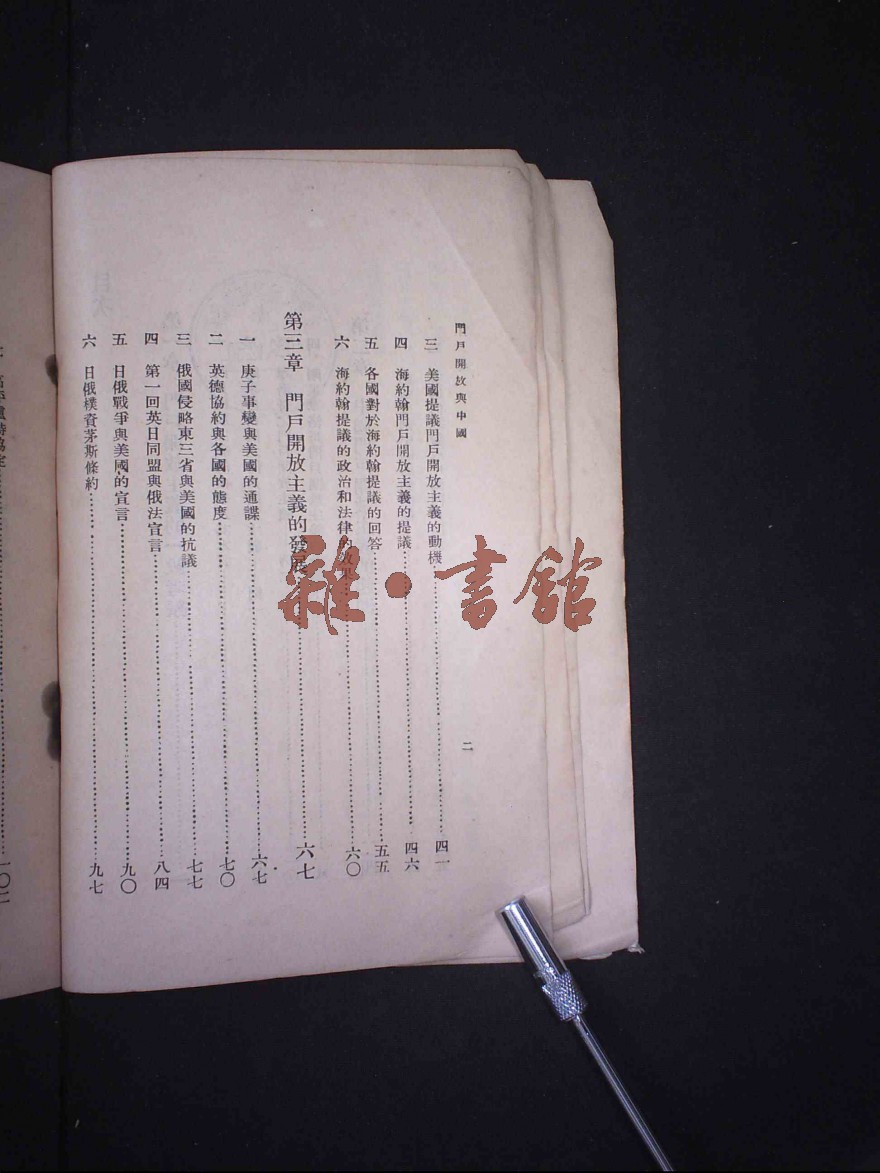 門戶開放與中國
二
三 美國提議門戶開放主義的動機……四一
四 海約翰門戶開放主義的提議……四六
五 各國對於海約翰提議的回答……五五
六 海約翰提議的政治和法律的效果……六〇
第三章 門戶開放主義的發展……六七
一 庚子事變與美國的通諜……六七
二 英德協約與各國的態度……七〇
三 俄國侵略東三省與美國的抗議……七七
四 第一回英日同盟與俄法宣言……八四
五 日俄戰爭與美國的宣言……九〇
六 日俄樸資茅斯條約……九七
雜·書館